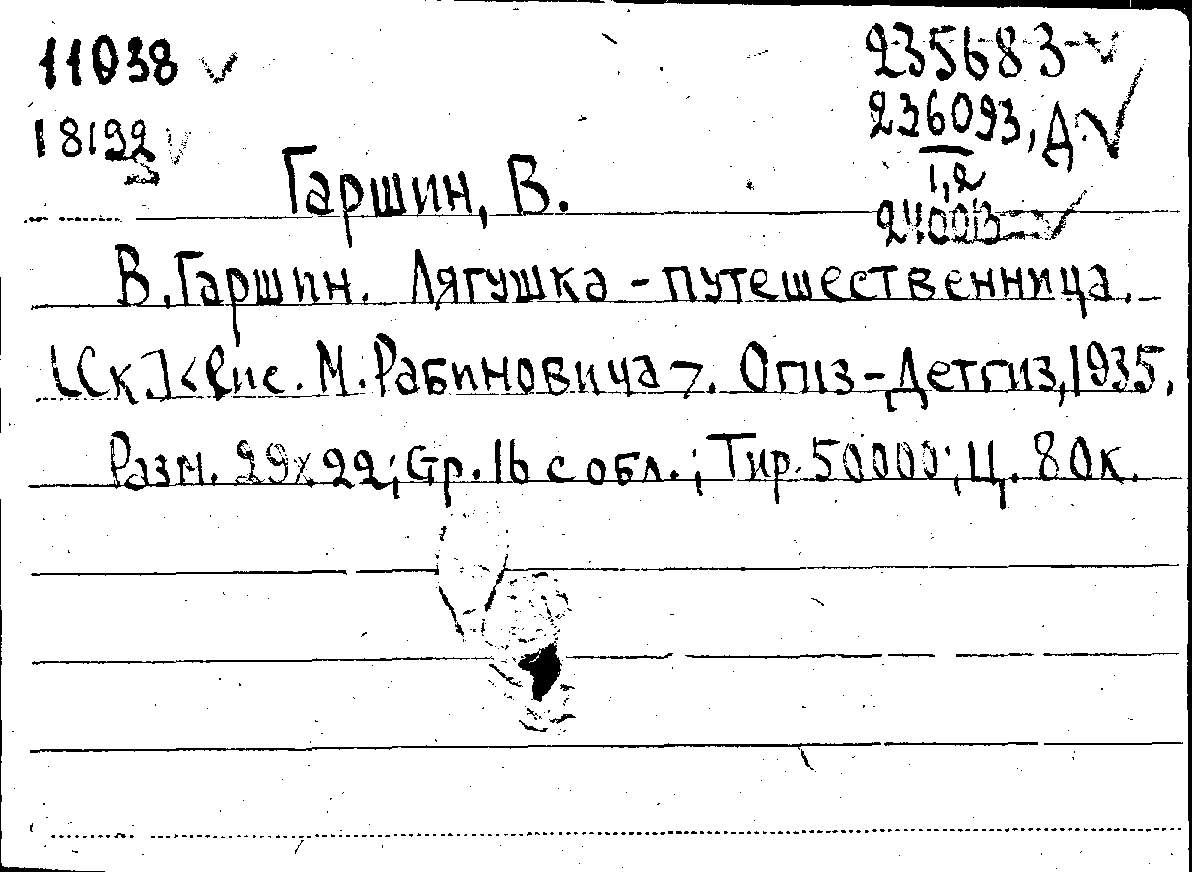 11038
18192
3
235683
236093, Д.
1,2
Гаршин, В.
В. Гаршин. Лягушка - путешественница.
[Ск.] <Рис. М. Рабиновича>. Огиз-Детгиз, 1935,
Разм. 29х22; Стр. 16 с обл.; Тир. 50000; Ц. 80к.